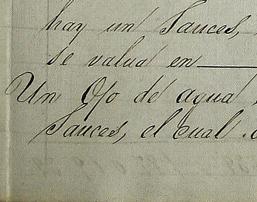 hay un Sauces,
se valua en
Un Ojo de agua
Sauces, el cual